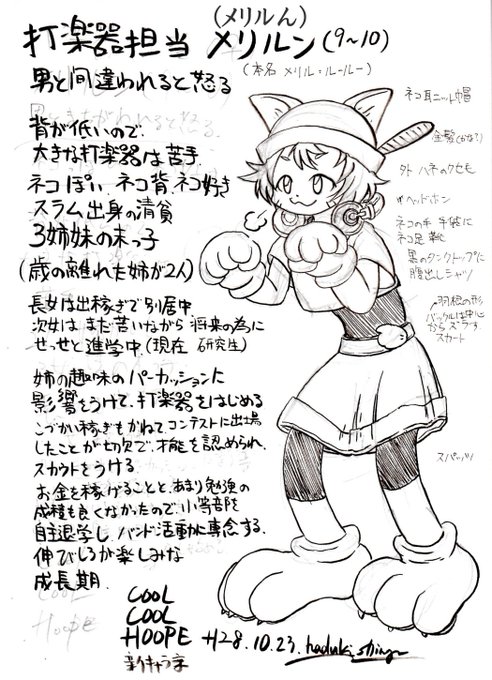 (メリルん)
打楽器担当 メリルン(9~10)
(本名 メリル・ルールー)
男と間違われると怒る
背が低いので、
大きな打楽器は苦手.
ネコぽい、ネコ背、ネコ好き
スラム出身の清貧
3姉妹の末っ子
(歳の離れた姉が2人)
長女は出稼ぎで別居中
次女はまだ苦いながら将来の為に
せっせと進学中.(現在 研究生)
姉の趣味のパーカッションに
影響をうけて、打楽器をはじめる
こづかい稼ぎもかねて、コンテストに出場
したことが切欠で、才能を認められ、
スカウトをうける.
お金を稼げることと、あまり勉強の
成績も良くなかったので、小等部を
自主退学し、バンド活動に専念する.
伸びしろが楽しみな
成長期.
COOL
COOL
HOOPE
新キャラ字
H28.10.23.
ネコ耳ニット帽
金髪(かな?)
外ハネのクセも
ヘッドホン
ネコの手 手袋に
ネコ足 靴
黒のタンクトップに
腹出しシャツ
羽根の形
バックルは中心
からズラす
スカート
スパッツ